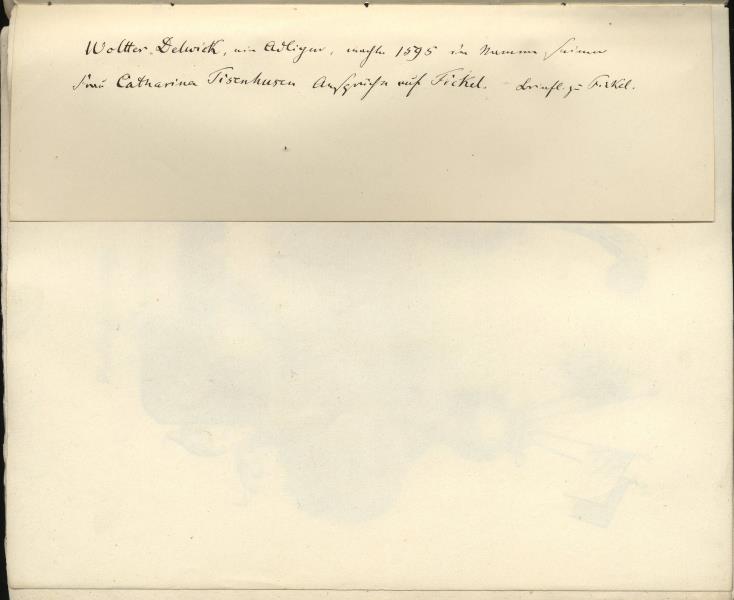 Woltter Delwick, ein Adliger, machte 1595 im Namen seiner
Frau Catharina Tisenhusen Ansprüche auf Fickel. - Briefl. zu Fickel.